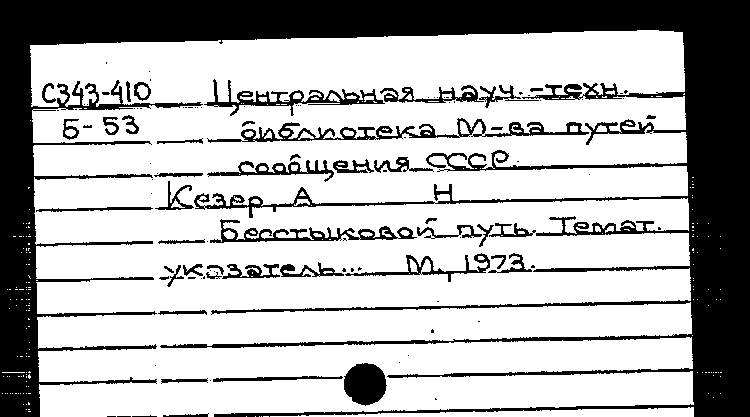 С343-410 Центральная науч.-техн.
Б-53 библиотека М-ва путей
сообщения СССР.
Кезер, А Н
Бесстыковой путь. Темат.
указатель... М., 1973.